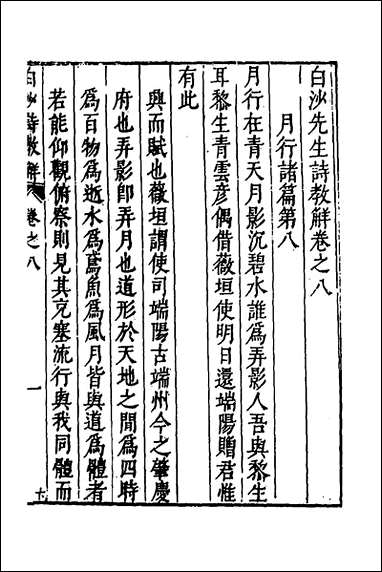 白沙先生詩教解卷之八
月行諸篇第八
月行在青天月影沉碧水誰爲弄影人吾與黎生
耳黎生青雲彥偶借薇垣使明日還端陽贈君惟
有此
興而賦也薇垣謂使司端陽古端州今之肇慶
府也弄影卽弄月也道形於天地之間爲四時
爲百物爲逝水爲鳶魚爲風月皆與道爲體者
若能仰觀俯察則見其充塞流行與我同體而
白沙詩教解 卷之八 一